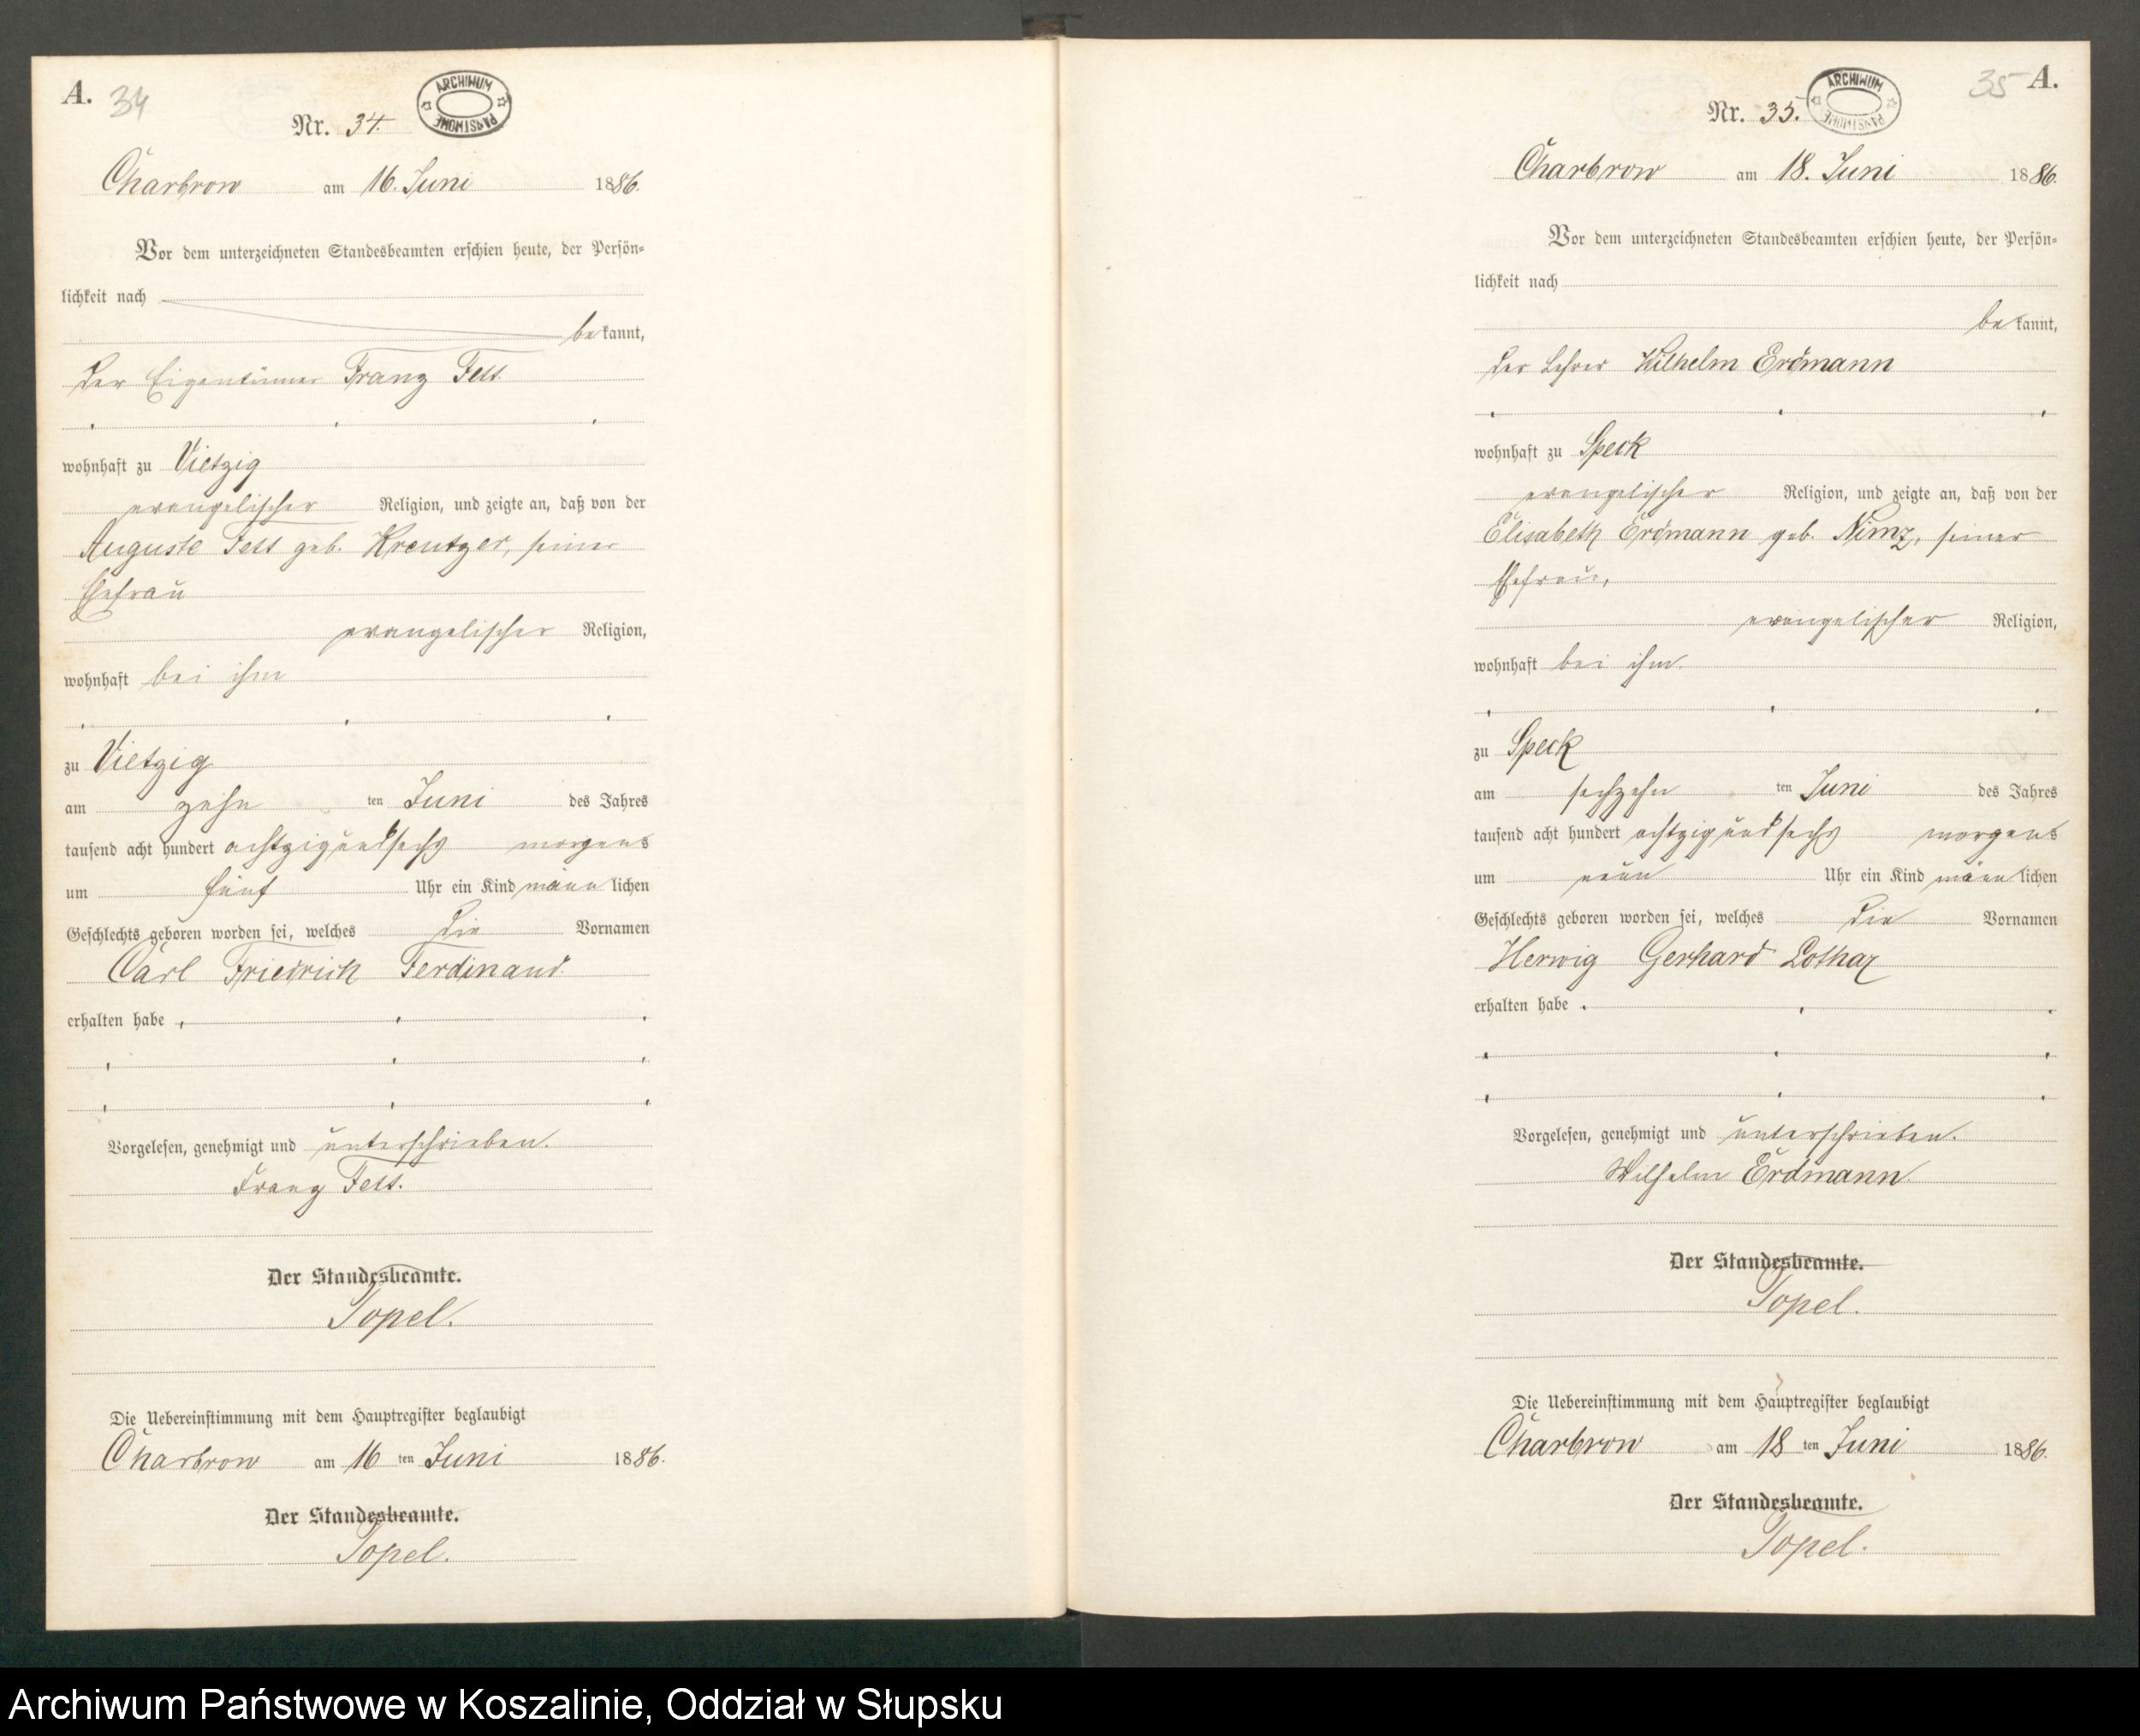 A. 34
ARCHIWUM PAŃSTWOWE
Nr. 34.
Charbrow am 16. Juni 1886.
Vor dem unterzeichneten Standesbeamten erschien heute, der Persön-
lichkeit nach
bekannt,
der Eigentümer Franz Fett.
wohnhaft zu Vietzig
evangelischer Religion, und zeigte an, daß von der
Auguste Fett geb. Kreutzer, seiner
Ehefrau
evangelischer Religion,
wohnhaft bei ihm
zu Vietzig
am zehn ten Juni des Jahres
tausend acht hundert achtzig und sechs morgens
um fünf Uhr ein Kind männlichen
Geschlechts geboren worden sei, welches die Vornamen
Carl Friedrich Ferdinand.
erhalten habe
Vorgelesen, genehmigt und unterschrieben.
Franz Fett.
Der Standesbeamte.
Topel.
Die Uebereinstimmung mit dem Hauptregister beglaubigt
Charbrow am 16 ten Juni 1886.
Der Standesbeamte.
Topel.
35 A.
ARCHIWUM PAŃSTWOWE
Nr. 35.
Charbrow am 18. Juni 1886.
Vor dem unterzeichneten Standesbeamten erschien heute, der Persön-
lichkeit nach
bekannt,
der Lehrer Wilhelm Erdmann
wohnhaft zu Speck
evangelischer Religion, und zeigte an, daß von der
Elisabeth Erdmann geb. Nimz, seiner
Ehefrau,
evangelischer Religion,
wohnhaft bei ihm.
zu Speck
am sechzehn ten Juni des Jahres
tausend acht hundert achtzig und sechs morgens
um neun Uhr ein Kind männlichen
Geschlechts geboren worden sei, welches die Vornamen
Herwig Gerhard Lothar
erhalten habe
Vorgelesen, genehmigt und unterschrieben.
Wilhelm Erdmann.
Der Standesbeamte.
Topel.
Die Uebereinstimmung mit dem Hauptregister beglaubigt
Charbrow am 18 ten Juni 1886.
Der Standesbeamte.
Topel.
Archiwum Państwowe w Koszalinie, Oddział w Słupsku